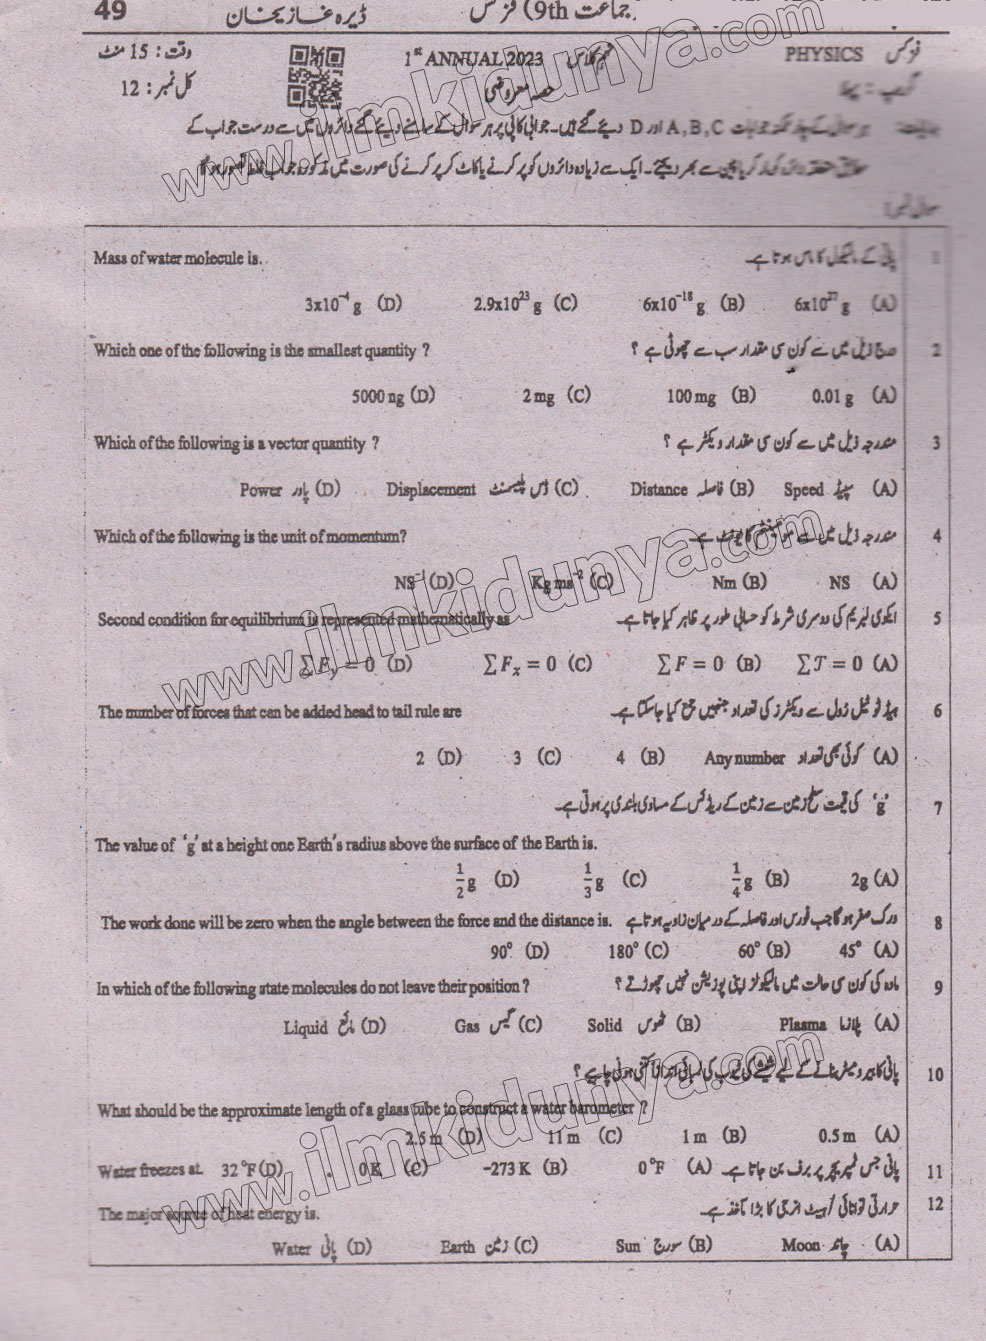 49 ڈیرہ غازیخان (جماعت 9th) فزکس
وقت: 15 منٹ 1st ANNUAL 2023 PHYSICS فزکس
کل نمبر: 12 حصہ معروضی گروپ: پہلا
ہر سوال کے چار ممکنہ جوابات A, B, C اور D دیئے گئے ہیں۔ جوابی کاپی پر ہر سوال کے سامنے دیئے گئے دائروں میں سے درست جواب کے
مطابق متعلقہ دائرہ کو مارکر یا پین سے بھر دیجئے۔ ایک سے زیادہ دائروں کو پر کرنے یا کاٹ کر پر کرنے کی صورت میں مذکورہ جواب غلط تصور ہو گا
سوال نمبر 1
Mass of water molecule is. پانی کے مالیکیول کا ماس ہوتا ہے۔ 1
3x10⁻⁴ g (D) 2.9x10²³ g (C) 6x10⁻¹⁸ g (B) 6x10²⁷ g (A)
Which one of the following is the smallest quantity ? درج ذیل میں سے کون سی مقدار سب سے چھوٹی ہے ؟ 2
5000 ng (D) 2 mg (C) 100 mg (B) 0.01 g (A)
Which of the following is a vector quantity ? مندرجہ ذیل میں سے کون سی مقدار ویکٹر ہے ؟ 3
Power پاور (D) Displacement ڈس پلیسمنٹ (C) Distance فاصلہ (B) Speed سپیڈ (A)
Which of the following is the unit of momentum? مندرجہ ذیل میں سے مومینٹم کا یونٹ ہے۔ 4
NS⁻¹ (D) Kg ms⁻² (C) Nm (B) NS (A)
Second condition for equilibrium is represented mathematically as ایکوی لبریم کی دوسری شرط کو حسابی طور پر ظاہر کیا جاتا ہے۔ 5
∑Fy = 0 (D) ∑Fx = 0 (C) ∑F = 0 (B) ∑T = 0 (A)
The number of forces that can be added head to tail rule are ہیڈ ٹو ٹیل رول سے ویکٹرز کی تعداد جنہیں جمع کیا جا سکتا ہے۔ 6
2 (D) 3 (C) 4 (B) Any number کوئی بھی تعداد (A)
'g' کی قیمت سطح زمین سے زمین کے ریڈئس کے مساوی بلندی پر ہوتی ہے۔ 7
The value of 'g' at a height one Earth's radius above the surface of the Earth is.
1/2 g (D) 1/3 g (C) 1/4 g (B) 2g (A)
The work done will be zero when the angle between the force and the distance is. ورک صفر ہو گا جب فورس اور فاصلہ کے درمیان زاویہ ہوتا ہے 8
90° (D) 180° (C) 60° (B) 45° (A)
In which of the following state molecules do not leave their position ? مادہ کی کون سی حالت میں مالیکیولز اپنی پوزیشن نہیں چھوڑتے ؟ 9
Liquid مائع (D) Gas گیس (C) Solid ٹھوس (B) Plasma پلازما (A)
پانی کا بیرومیٹر بنانے کے لیے شیشے کی ٹیوب کی لمبائی اندازاً کتنی ہونی چاہیے ؟ 10
What should be the approximate length of a glass tube to construct a water barometer ?
2.5 m (D) 11 m (C) 1 m (B) 0.5 m (A)
Water freezes at. 32 °F (D) 0 K (C) -273 K (B) 0 °F (A) پانی جس ٹمپریچر پر برف بن جاتا ہے۔ 11
The major source of heat energy is. حرارتی توانائی / ہیٹ انرجی کا بڑا مآخذ ہے۔ 12
Water پانی (D) Earth زمین (C) Sun سورج (B) Moon چاند (A)
www.ilmkidunya.com
www.ilmkidunya.com
www.ilmkidunya.com